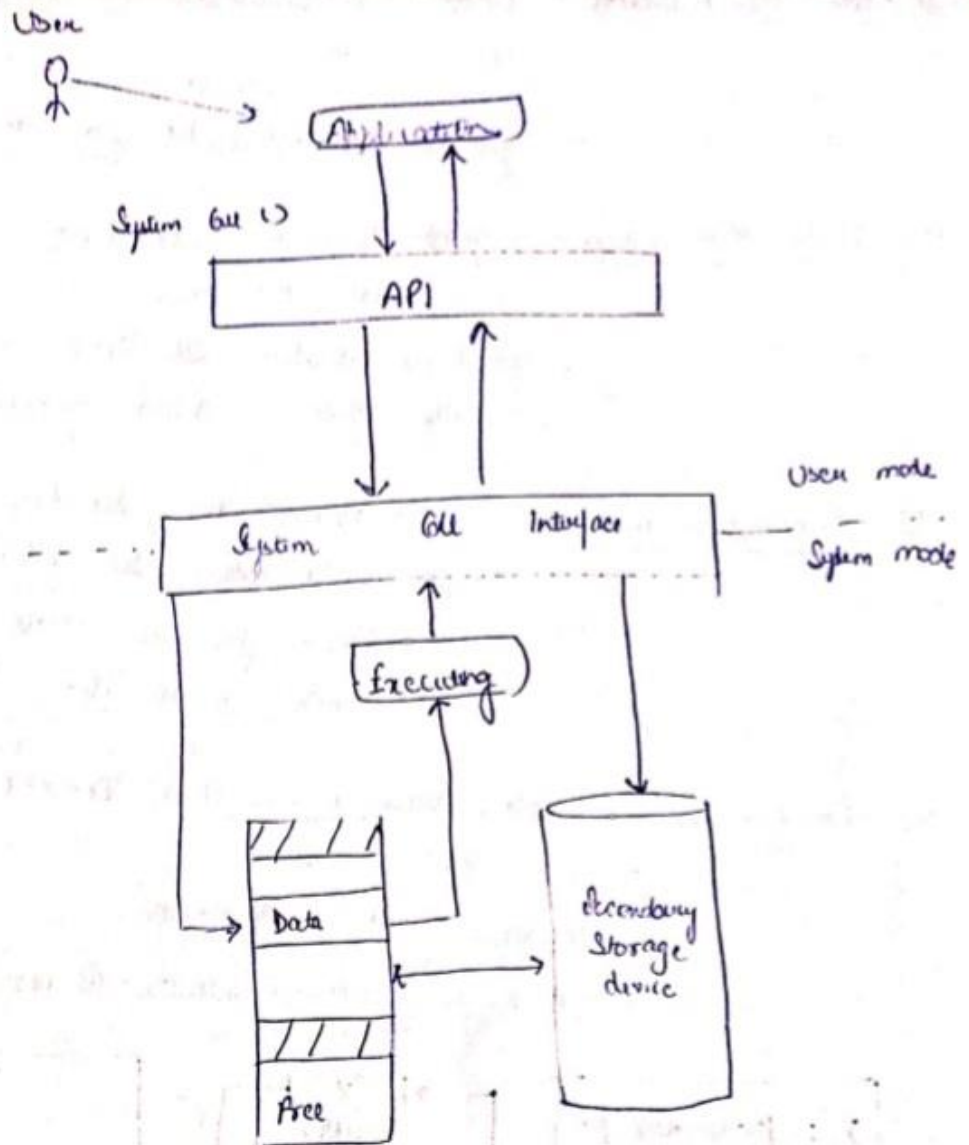 User
Application
System Call ()
API
User mode
System Call Interface
System mode
Executing
Data
Secondary
Storage
device
Free